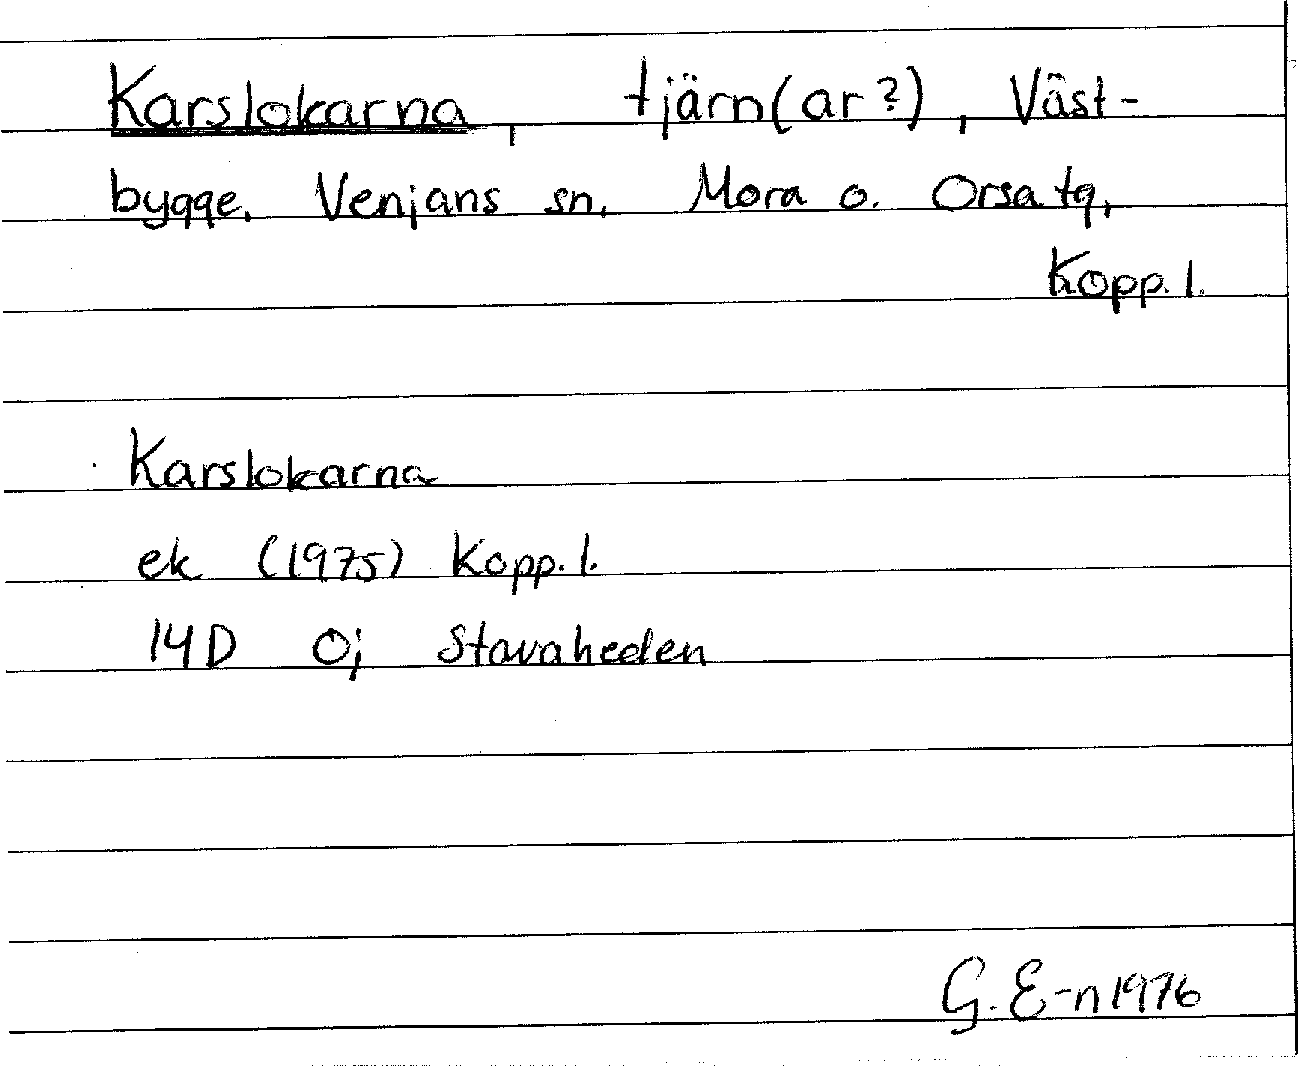 Karslokarna, tjärn(ar?), Väst-
bygge, Venjans sn, Mora o. Orsa tg,
Kopp. l.
Karslokarna
ek (1975) Kopp. l.
14D 0j Stavaheden
G. E-n 1976